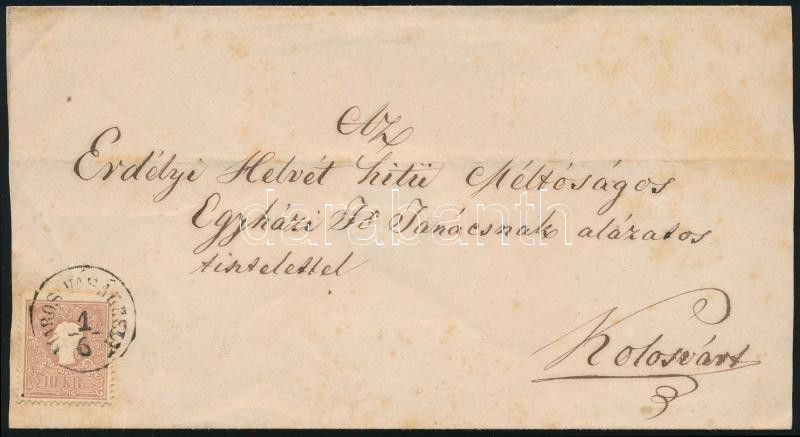 Az
Erdélyi Helvét hitü Méltóságos
Egyházi Fő Tanácsnak alázatos
tisztelettel
Kolosvárt
MAROS VÁSÁRHELY
1
6
10 KR.
darabanth